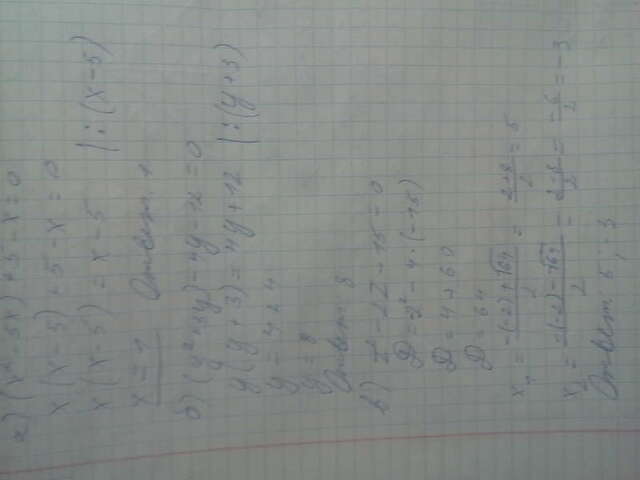 а) (x² - 5x) + 5 - x = 0
x(x - 5) + 5 - x = 0
x(x - 5) = x - 5 |:(x-5)
x = 1 Ответ: 1
б) (y² + 3y) - 4y - 12 = 0
y(y + 3) = 4y + 12 |:(y+3)
y = 4 + 4
y = 8
Ответ: 8
в) z² - 2z - 15 = 0
D = 2² - 4·(-15)
D = 4 + 60
D = 64
x₁ = (-(-2)+√64)/2 = (2+8)/2 = 5
x₂ = (-(-2)-√64)/2 = (2-8)/2 = -6/2 = -3
Ответ: 5; -3